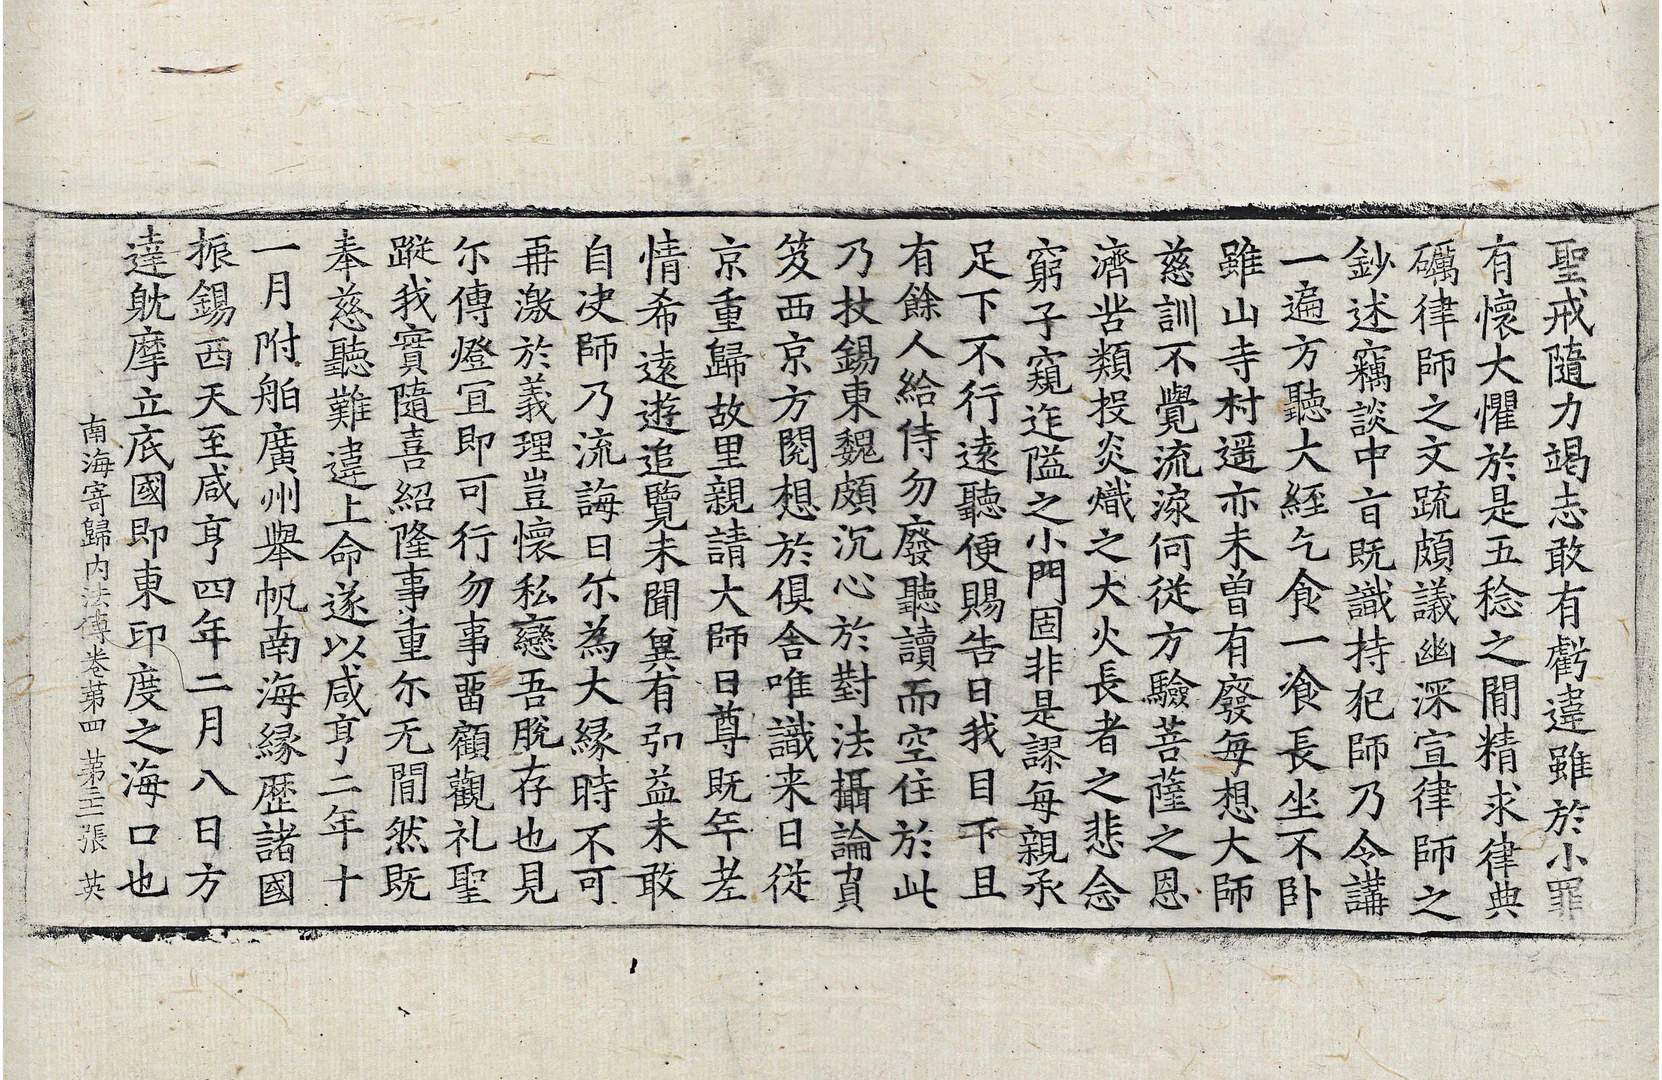 聖戒隨力竭志敢有虧違雖於小罪
有懷大懼於是五稔之間精求律典
礪律師之文疏頗議幽深宣律師之
鈔述竊談中㫖既識持犯師乃令講
一遍方聽大經乞食一湌長坐不卧
雖山寺村遥亦未曽有廢每想大師
慈訓不覺流淚何從方驗菩薩之恩
濟苦類投炎熾之大火長者之悲念
窮子窺迮隘之小門固非是謬每親承
足下不行遠聽便賜告曰我目下且
有餘人給侍勿廢聽讀而空住於此
乃杖錫東魏頗沉心於對法攝論負
笈西京方閱想於俱舍唯識来日從
京重歸故里親請大師曰尊既年老
情希遠遊追覽未聞兾有弘益未敢
自决師乃流誨曰尓為大縁時不可
再激於義理豈懷私戀吾脫存也見
尓傳燈冝即可行勿事畱顧觀礼聖
蹤我實隨喜紹隆事重尓无間然既
奉慈聽難違上命遂以咸亨二年十
一月附舶廣州舉帆南海縁歷諸國
振錫西天至咸亨四年二月八日方
達躭摩立底國即東印度之海口也
南海寄歸內法傳卷第四 苐三十張 英